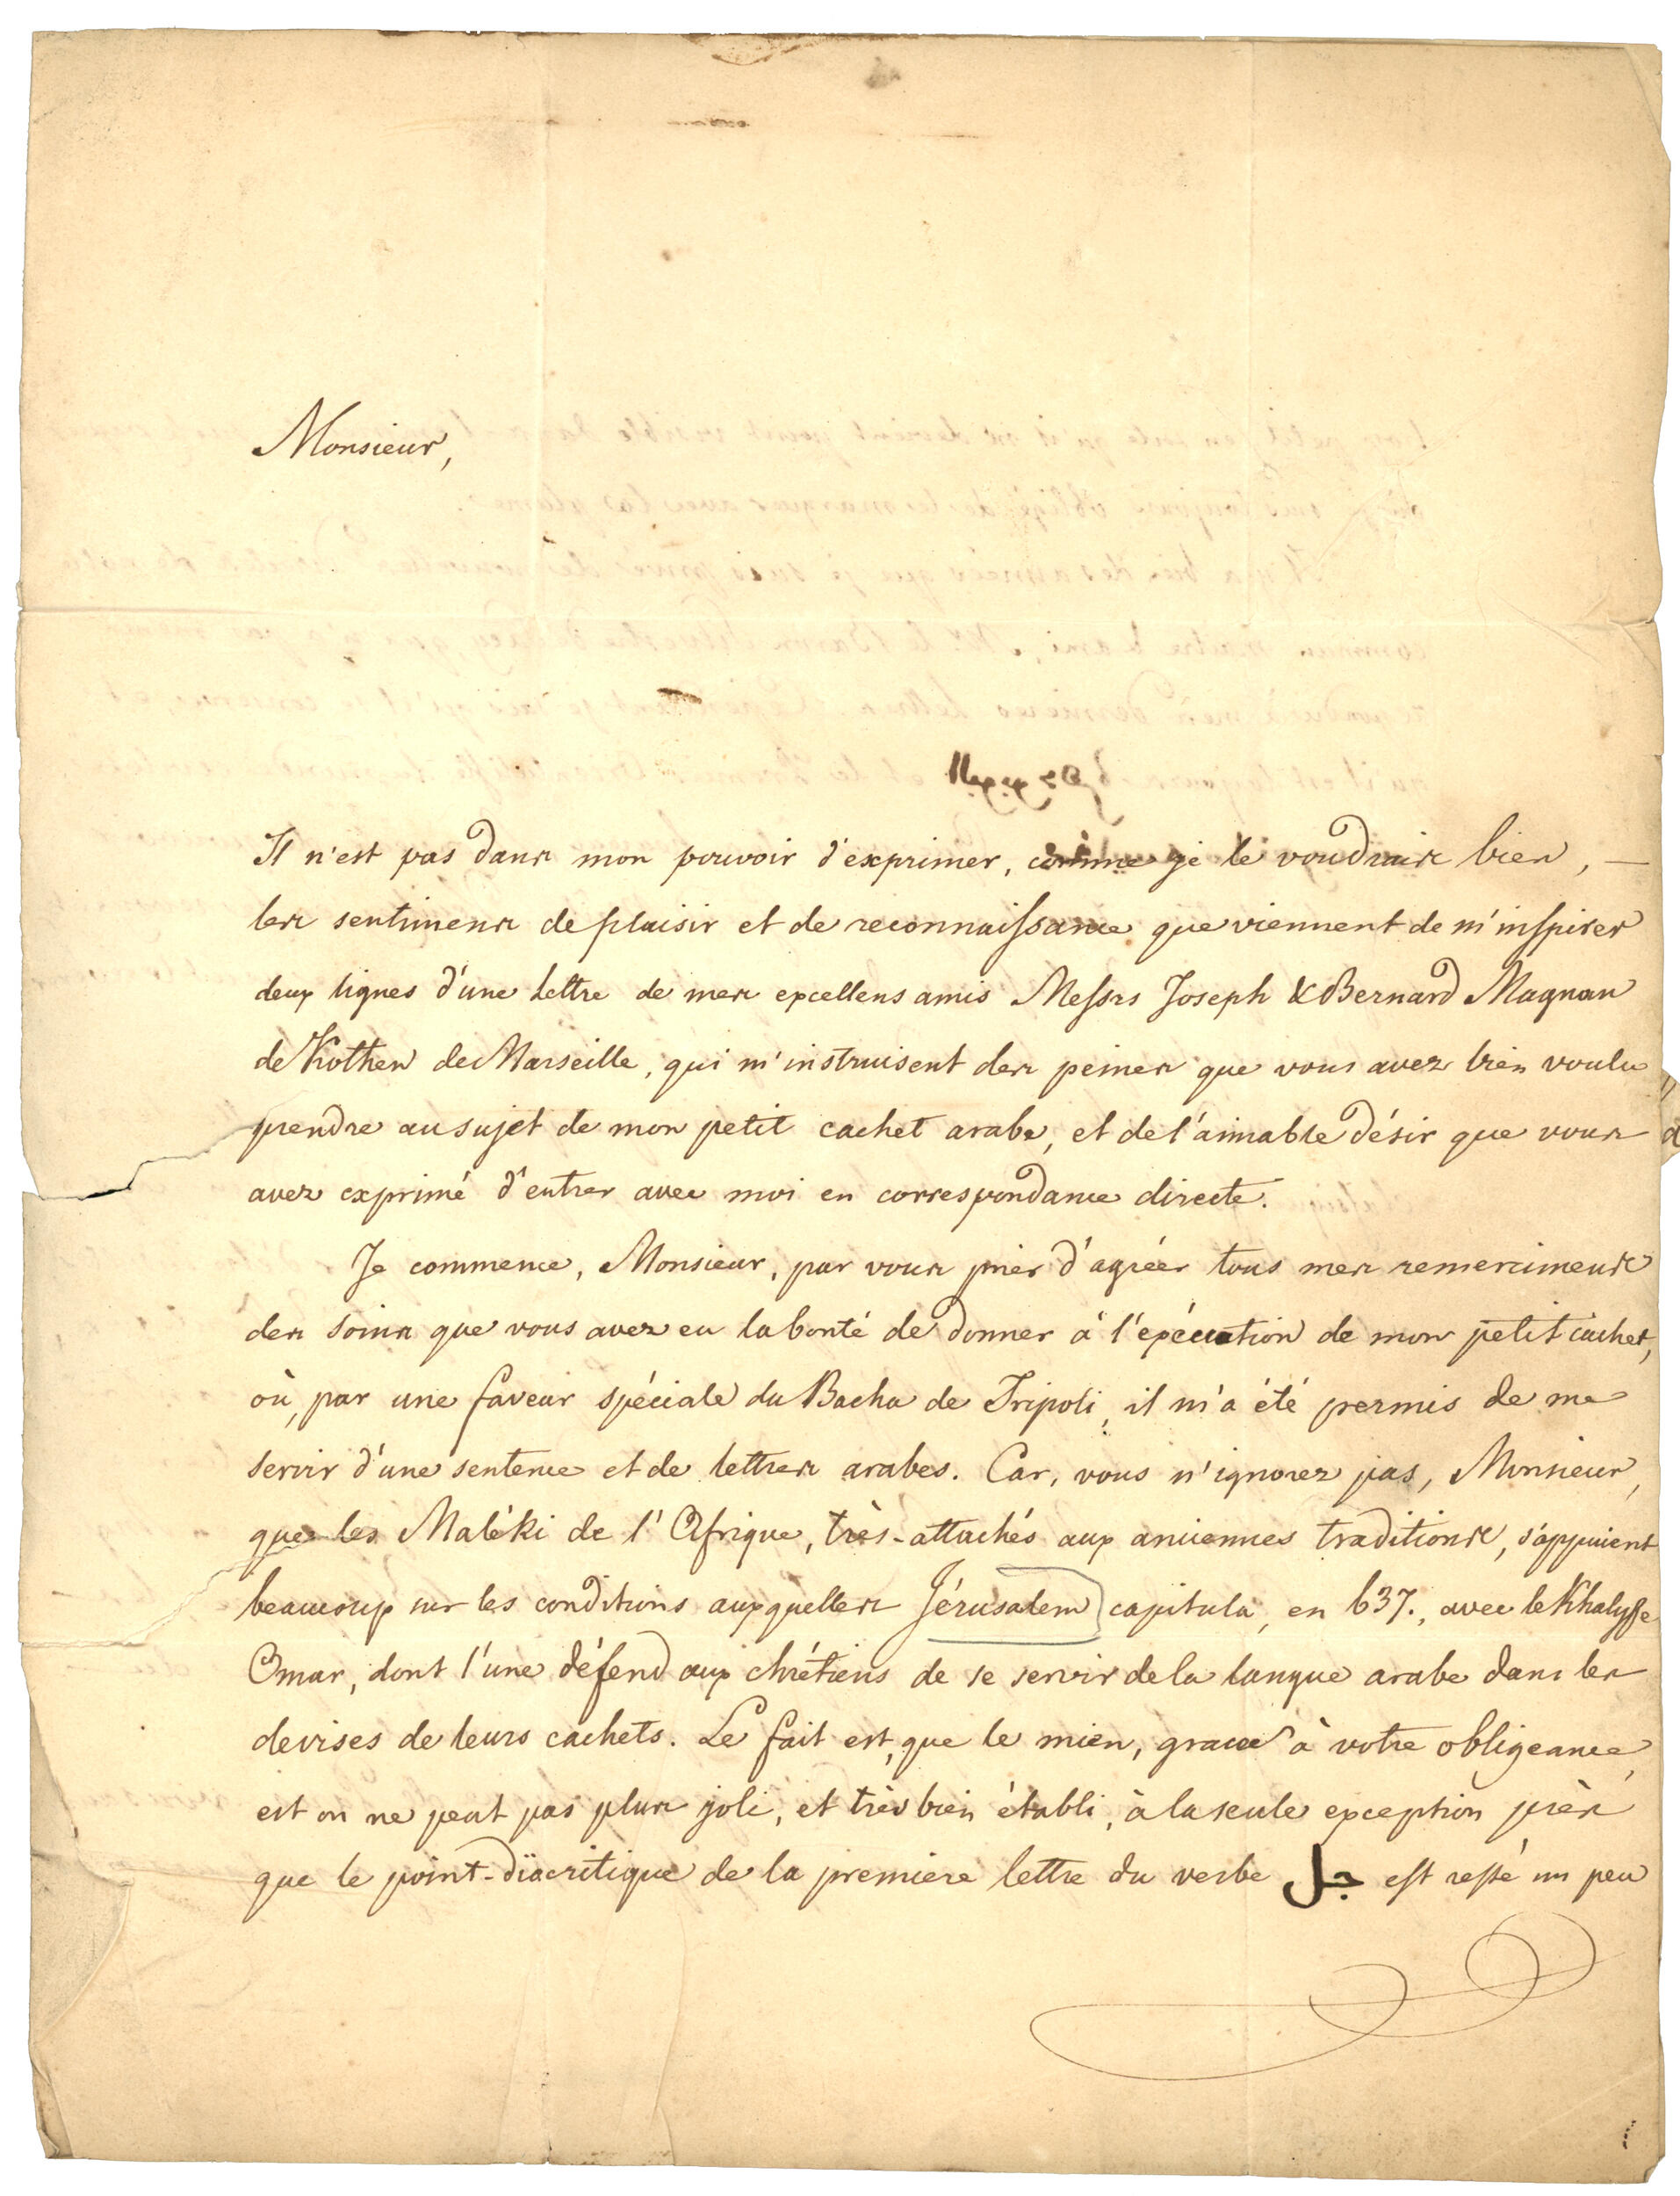 Monsieur,
Il n'est pas dans mon pouvoir d'exprimer, comme je le voudrais bien, —
les sentimens de plaisir et de reconnaissance que viennent de m'inspirer
deux lignes d'une lettre de mes excellens amis Messrs Joseph & Bernard Magnan
de Kothen de Marseille, qui m'instruisent des peines que vous avez bien voulu
prendre au sujet de mon petit cachet arabe, et de l'aimable désir que vous
avez exprimé d'entrer avec moi en correspondance directe.
Je commence, Monsieur, par vous prier d'agréer tous mes remercimens
des soins que vous avez eu la bonté de donner à l'exécution de mon petit cachet,
où, par une faveur spéciale du Bacha de Tripoli, il m'a été permis de me
servir d'une sentence et de lettres arabes. Car, vous n'ignorez pas, Monsieur,
que les Maléki de l'Afrique, très-attachés aux anciennes traditions, s'appuient
beaucoup sur les conditions auxquelles Jérusalem capitula, en 637., avec le Khalyffe
Omar, dont l'une défend aux chrétiens de se servir de la langue arabe dans les
devises de leurs cachets. Le fait est, que le mien, grace à votre obligeance,
est on ne peut pas plus joli, et très bien établi, à la seule exception près
que le point-diacritique de la premiere lettre du verbe جل est resté un peu